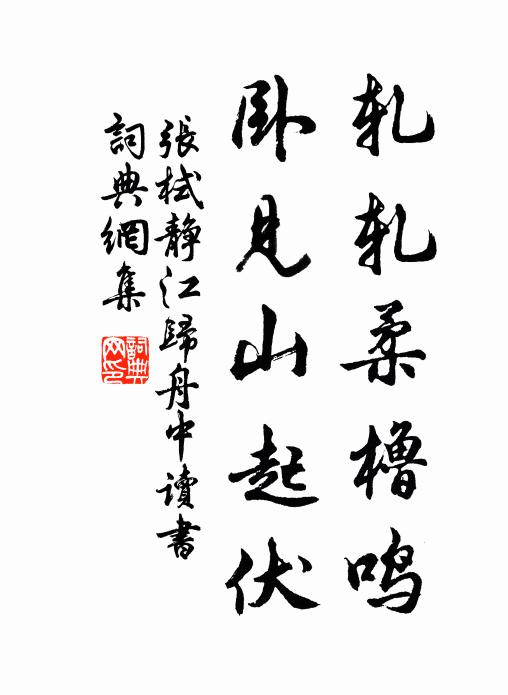 軋軋柔櫓鳴
臥見山起伏
張栻靜江歸舟中讀書
詞典網集
詞典網印